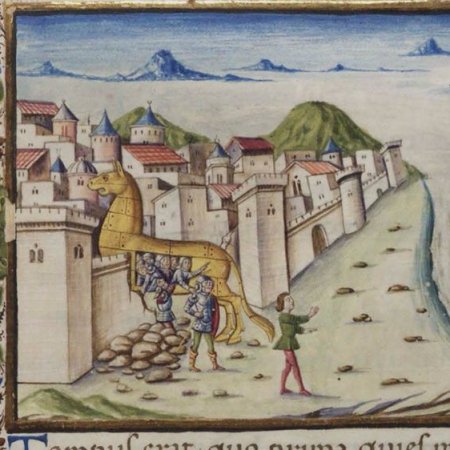 Tempus erat quo prima quies